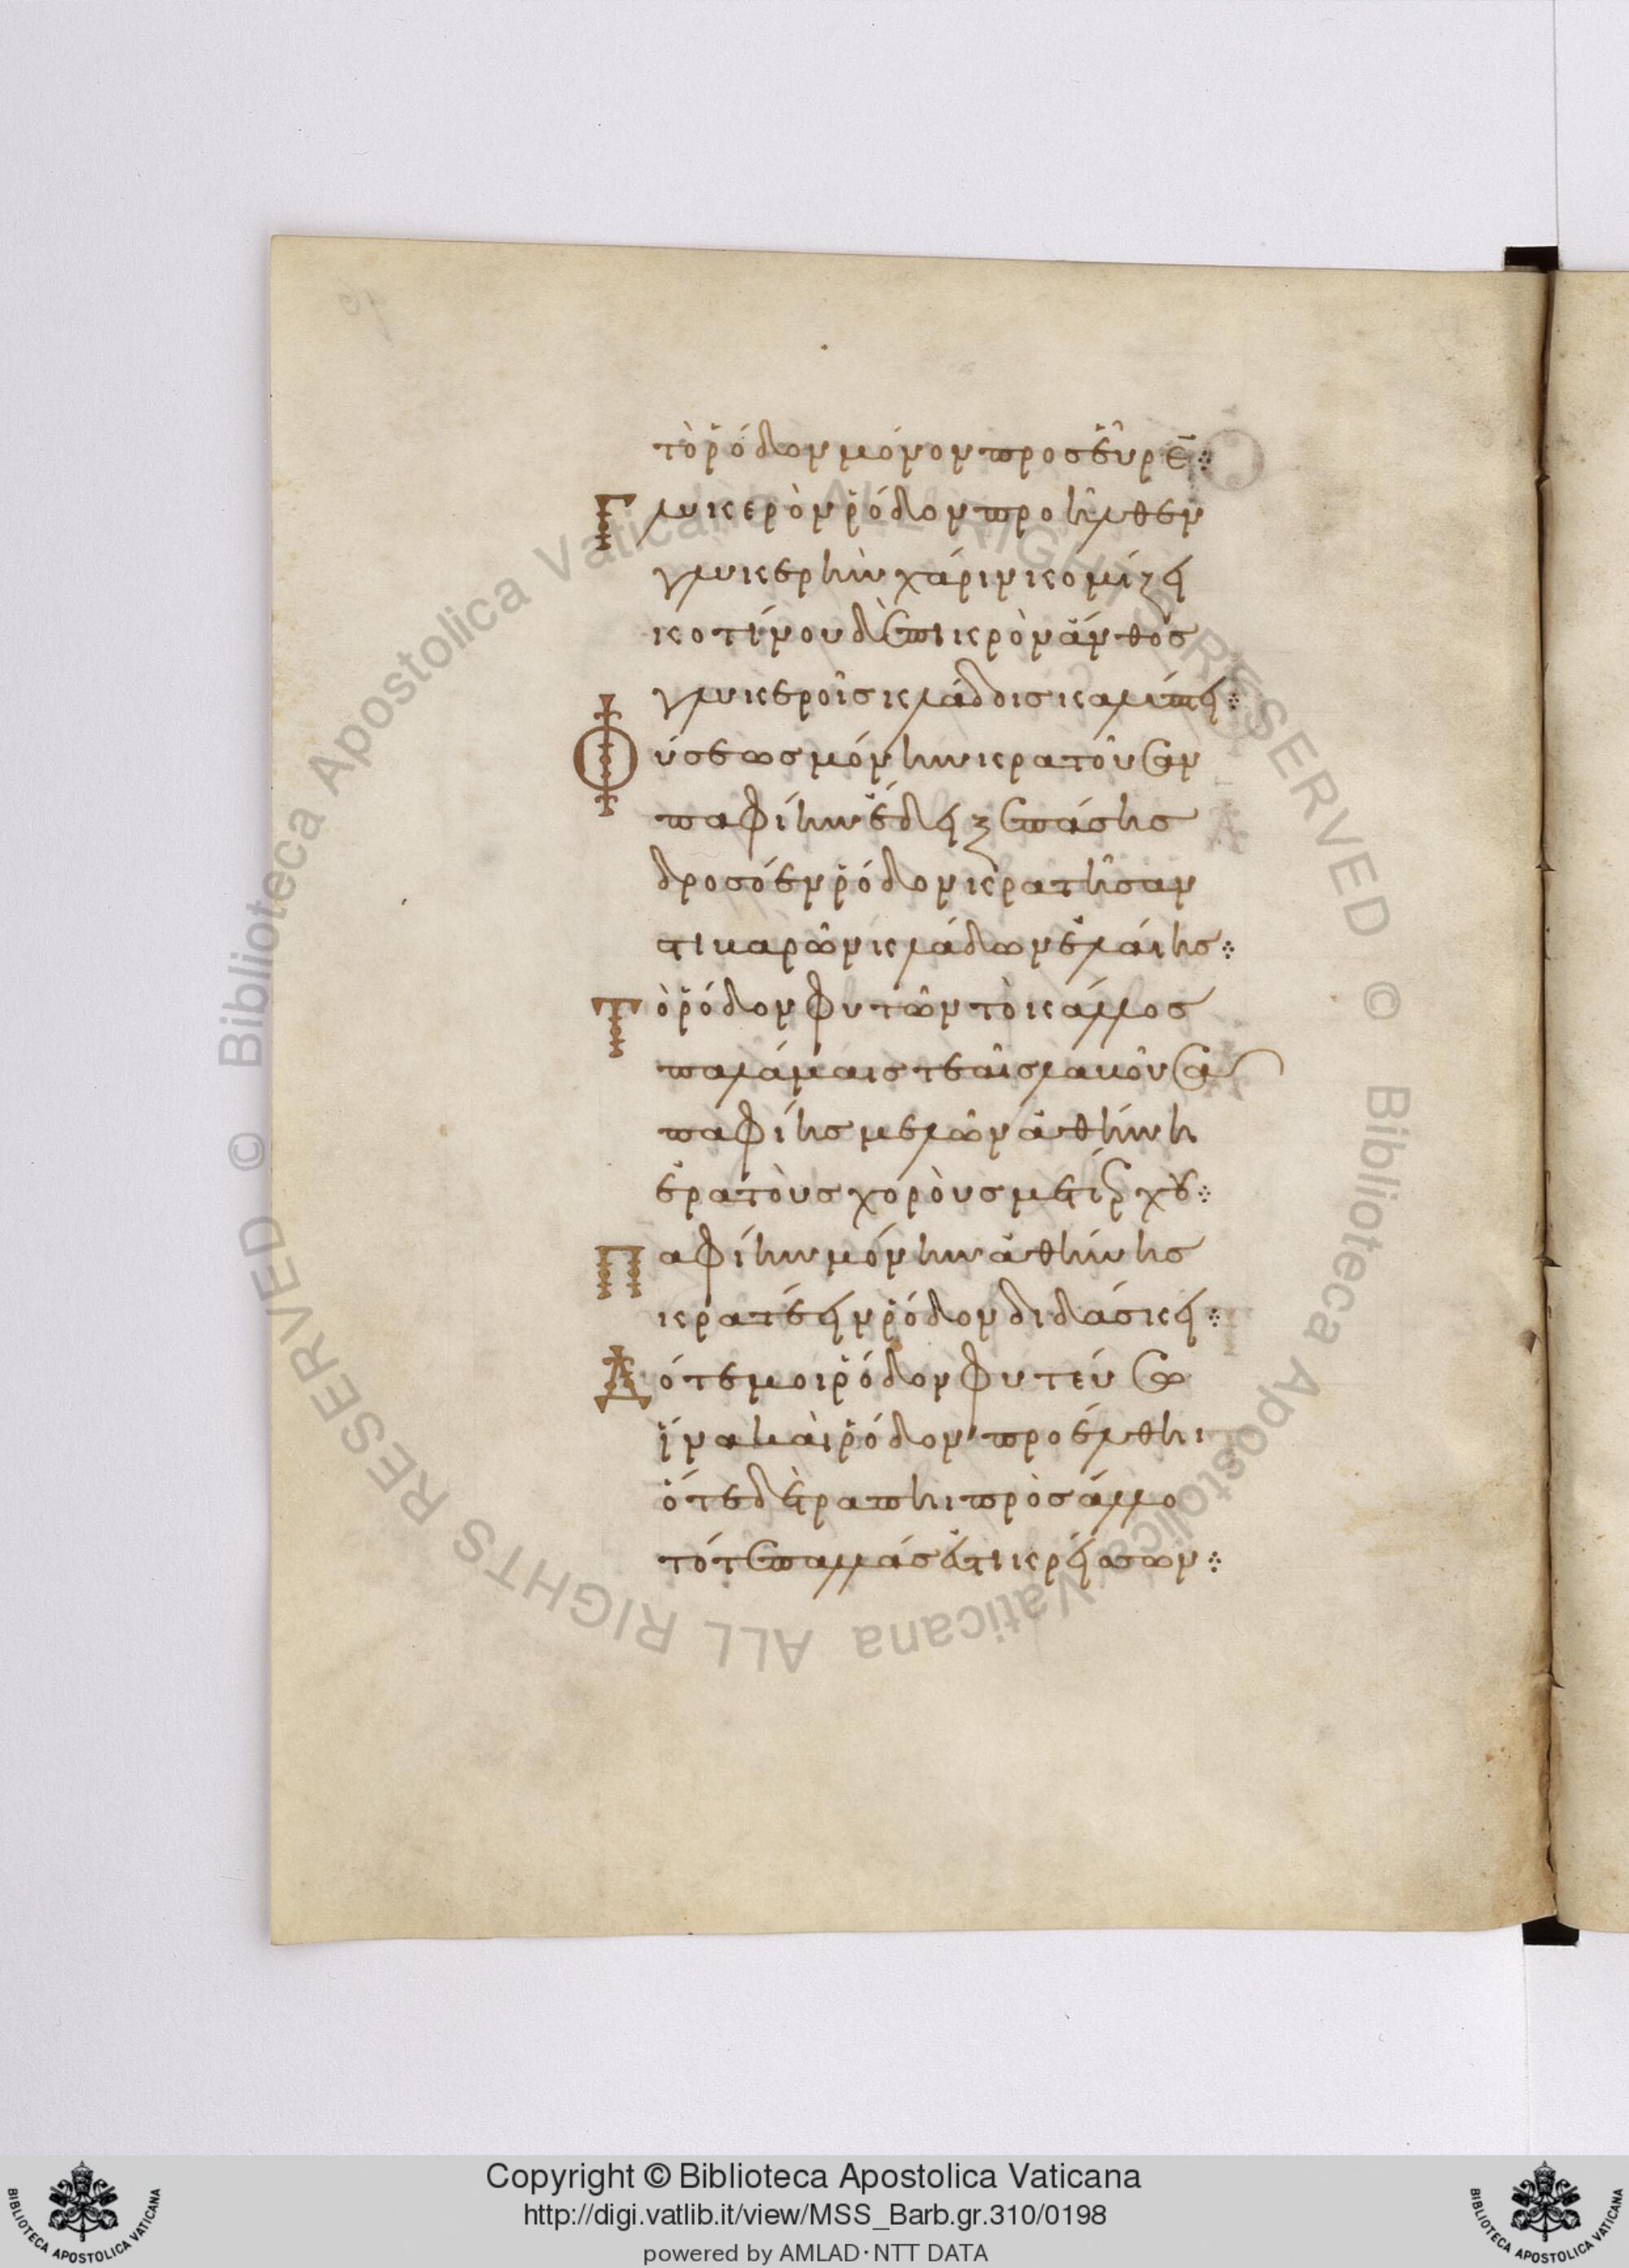 τὸ ῥόδων μόνον προσεῦρε̄ ⁘
Γλυκερὸν ῥόδον προῆλθεν
γλυκερὴν χάριν κομίζει
κοτίνου δ' ἐπικρὸν ἄνθος
γλυκεροῖς κλάδοισι καλύπτει ⁘
Φύσεως μόνην κρατοῦσαν
παφίην ἔδειξε πάσης
δροσόεν ῥόδον κρατῆσαν
πικαρῶν κλάδων ἐλαίης ⁘
Τὸ ῥόδον φυτῶν τὸ κάλλος
παλάμαις τεαῖς λακοῦσα
παφίης μελῶν ἀθήνη
ἐρατοὺς χοροὺς μετέρχου ⁘
Παφίην μόνην ἀθήνης
κρατέειν ῥόδον διδάσκει ⁘
Δότε μοι ῥόδον φυτεύσω
ἵνα καὶ ῥόδον προέλθηι
ὅτε δὲ τραπῆι πρὸς ἄλλο
τότε παλλάς ἐστι κρείσσων ⁘
© Biblioteca Apostolica Vaticana ALL RIGHTS RESERVED
© Biblioteca Apostolica Vaticana ALL RIGHTS RESERVED
Copyright © Biblioteca Apostolica Vaticana
http://digi.vatlib.it/view/MSS_Barb.gr.310/0198
powered by AMLAD·NTT DATA
BIBLIOTECA APOSTOLICA VATICANA
BIBLIOTECA APOSTOLICA VATICANA